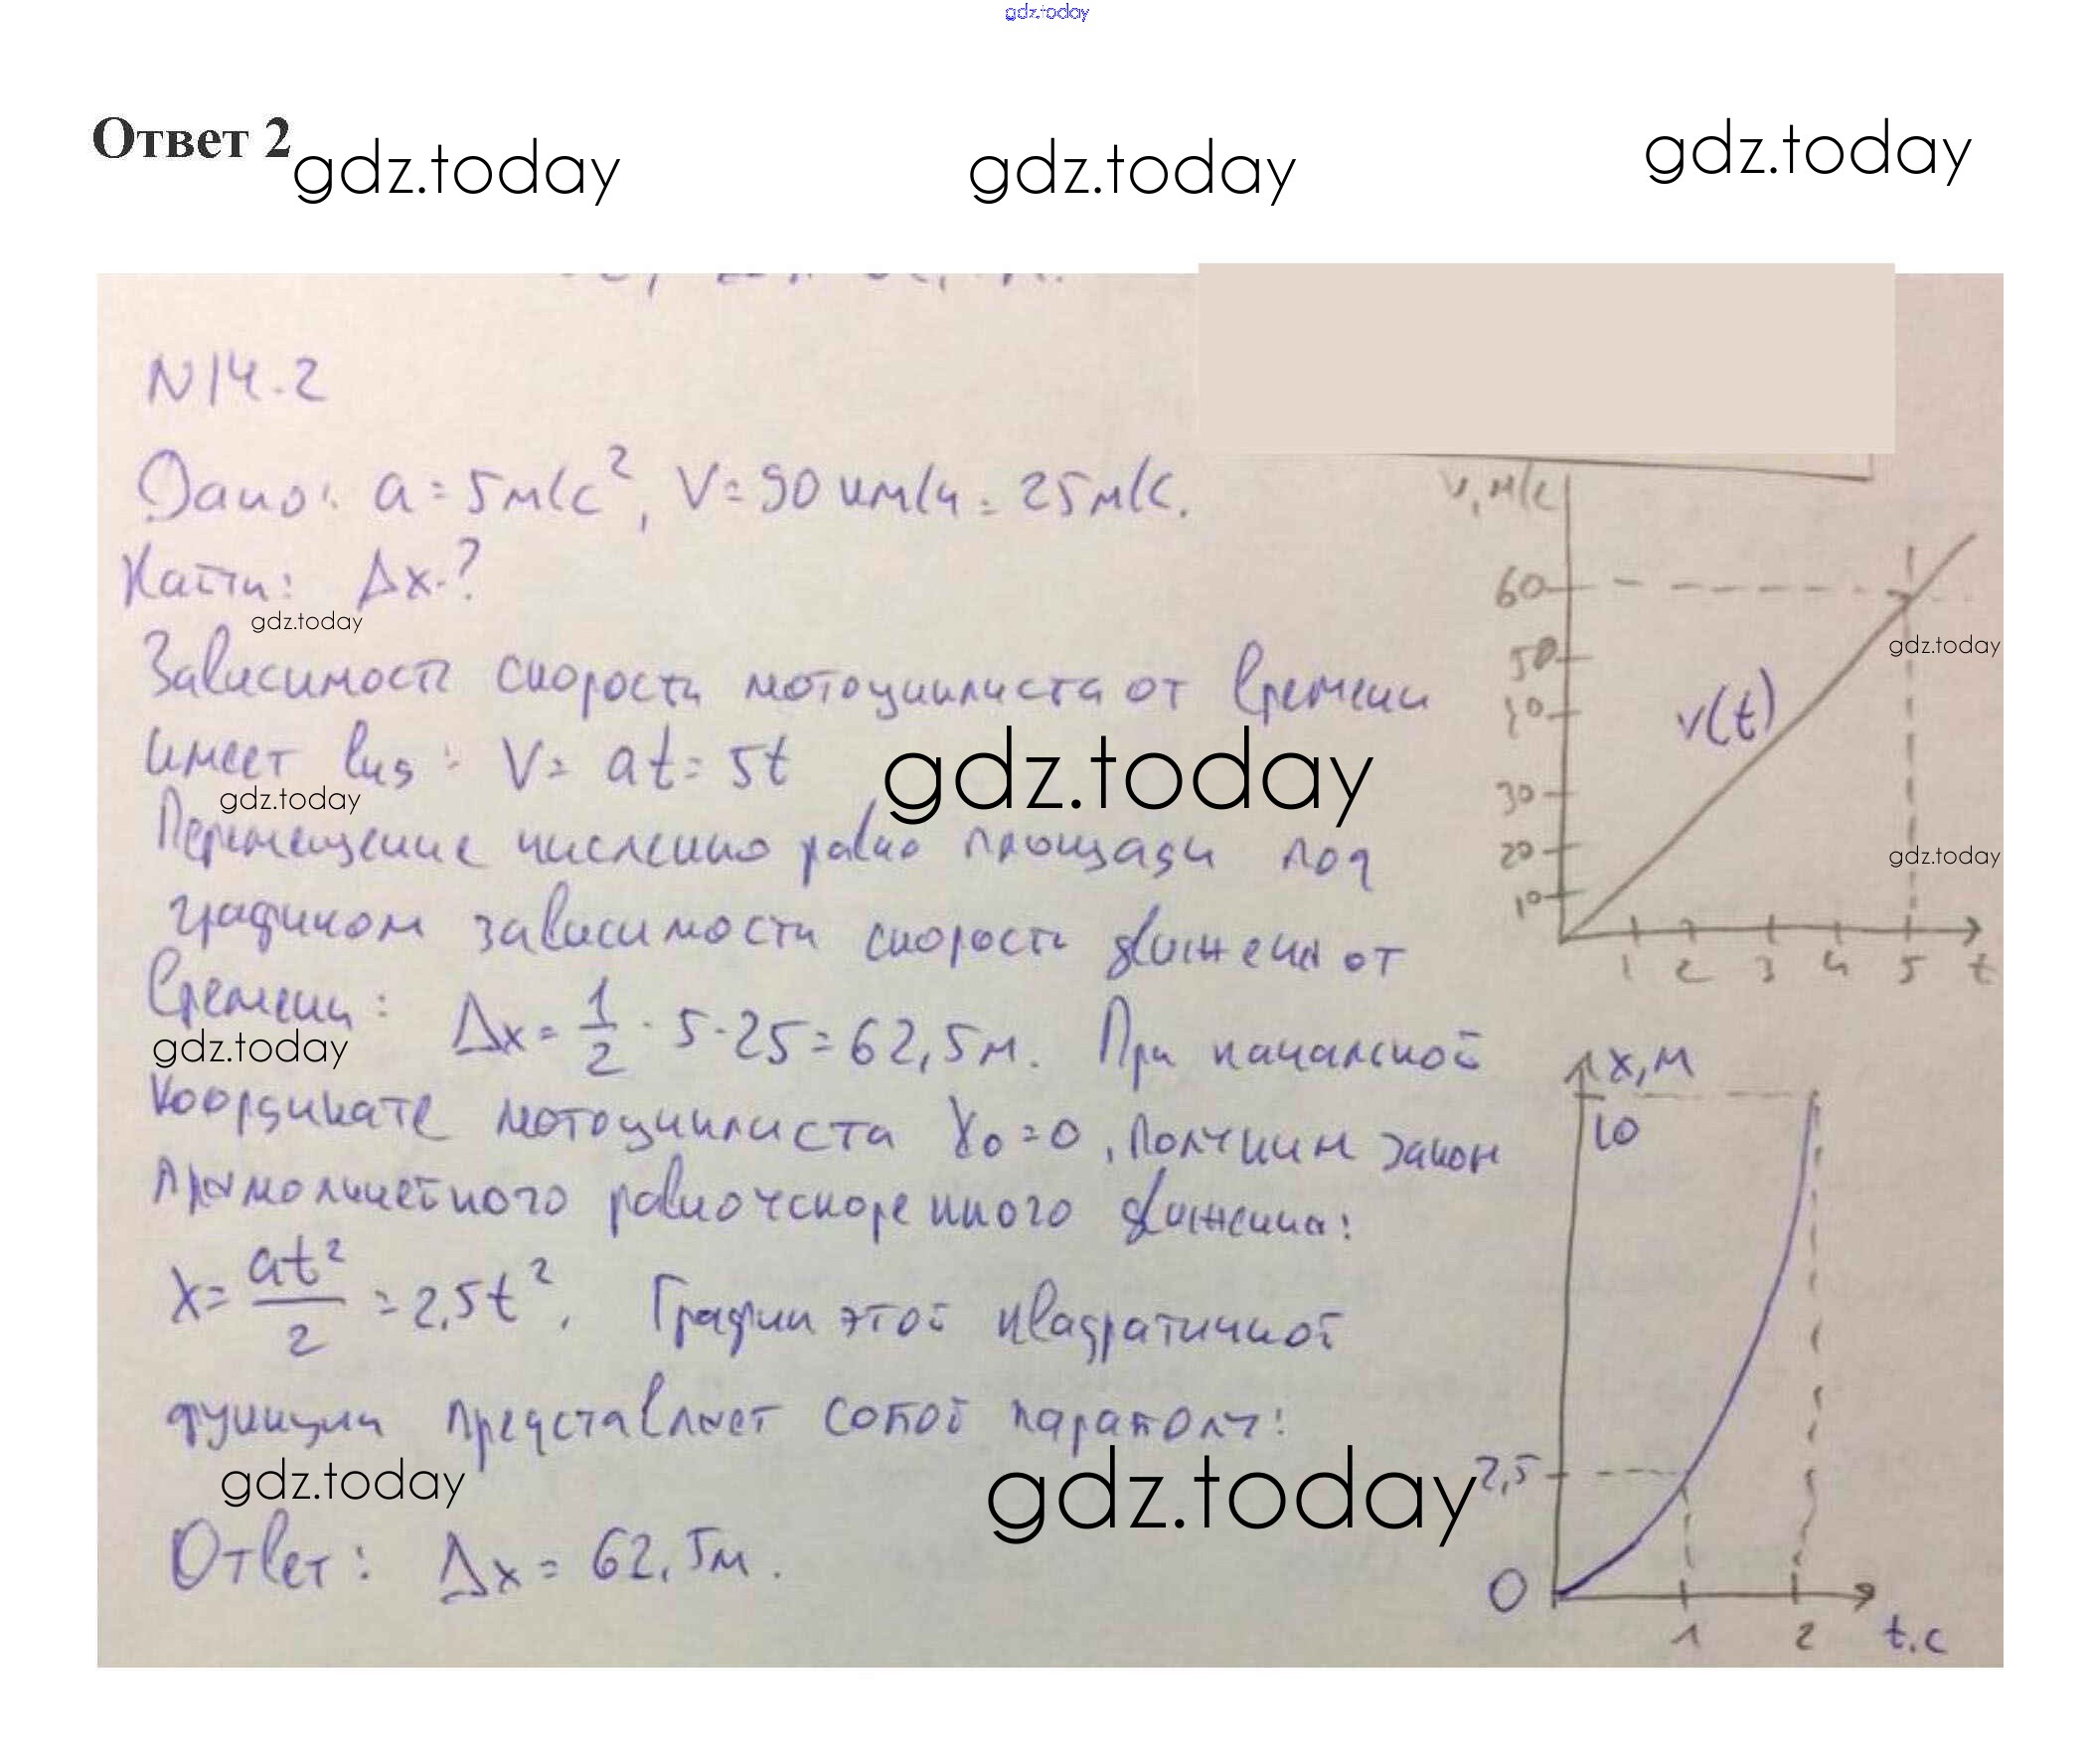 gdz.today
Ответ 2
gdz.today gdz.today gdz.today
N14.2
Дано: a = 5 м/с², V = 90 км/ч = 25 м/с.
Найти: Δx-?
gdz.today
Зависимость скорости мотоциклиста от времени
имеет вид: V = at = 5t
gdz.today gdz.today
Перемещение численно равно площади под
графиком зависимости скорости движения от
времени: Δx = 1/2 · 5 · 25 = 62,5 м. При начальной
gdz.today
координате мотоциклиста x₀ = 0, получим закон
прямолинейного равноускоренного движения:
x = at²/2 = 2,5t². График этой квадратичной
функции представляет собой параболу:
gdz.today gdz.today
Ответ: Δx = 62,5 м.
v, м/с
60
50
30
20
10
v(t)
gdz.today
gdz.today
1 2 3 4 5 t
x, м
10
2,5
0
1 2 t.c